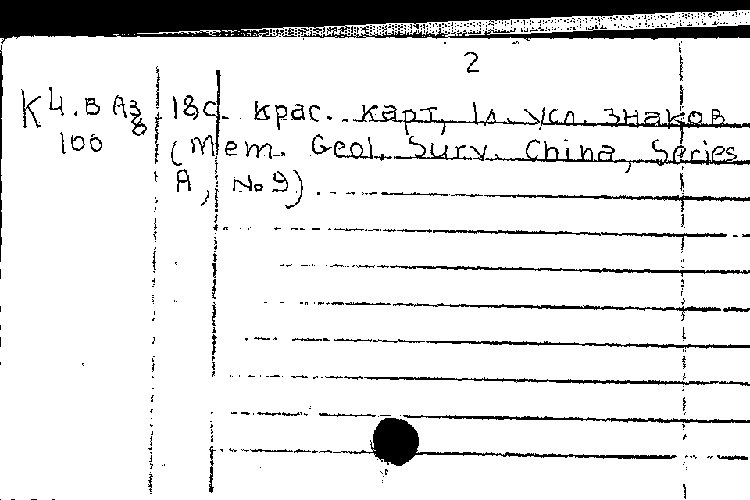 2
К4.В Аз 18с. крас. карт, 1л. усл. знаков
100 (Mem. Geol. Surv. China, Series
A, №9)